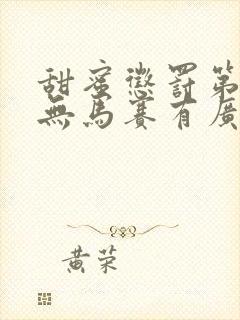 甜蜜懲罰第
無馬賽有廣
黃荣